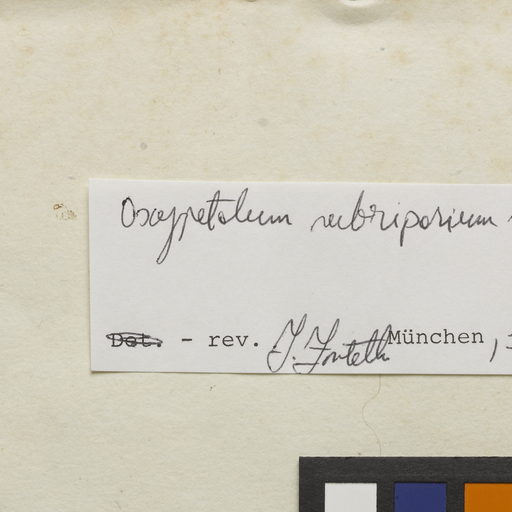 Oxypetalum subriparium
Det. - rev. J. Fontella München,